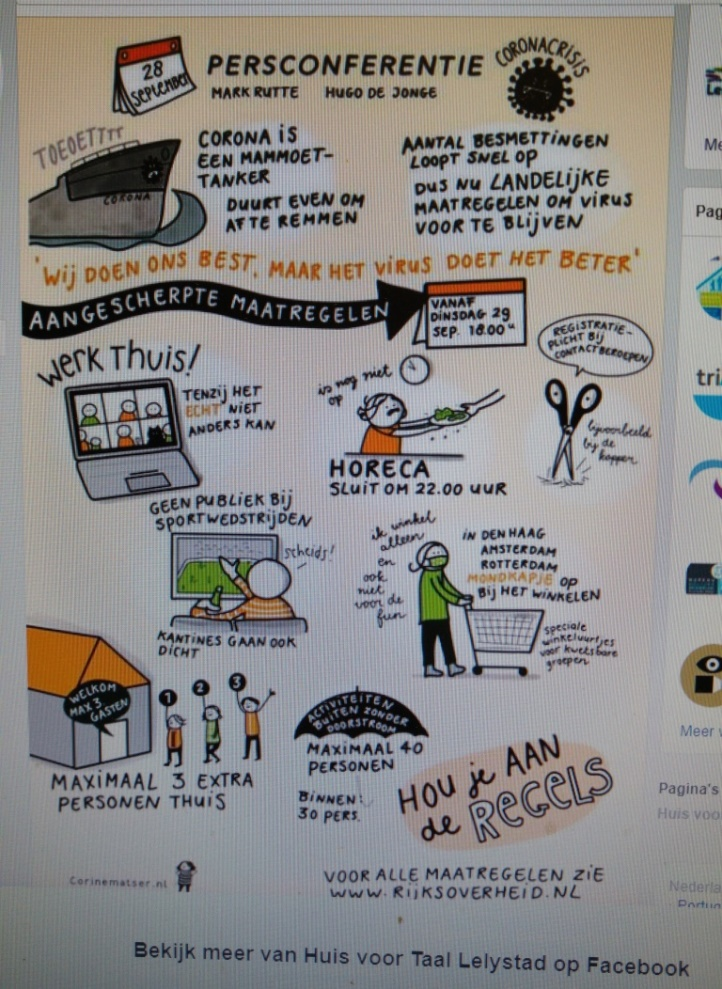 28 SEPTEMBER
PERSCONFERENTIE
MARK RUTTE HUGO DE JONGE
CORONACRISIS
TOEOETTTT
CORONA
CORONA IS
EEN MAMMOET-
TANKER
DUURT EVEN OM
AF TE REMMEN
AANTAL BESMETTINGEN
LOOPT SNEL OP
DUS NU LANDELIJKE
MAATREGELEN OM VIRUS
VOOR TE BLIJVEN
'WIJ DOEN ONS BEST, MAAR HET VIRUS DOET HET BETER'
AANGESCHERPTE MAATREGELEN
VANAF
DINSDAG 29
SEP. 18.00 U
WERK THUIS!
TENZIJ HET
ECHT NIET
ANDERS KAN
is nog niet
op
HORECA
SLUIT OM 22.00 UUR
REGISTRATIE-
PLICHT BIJ
CONTACTBEROEPEN
bijvoorbeeld
bij de
kapper
GEEN PUBLIEK BIJ
SPORTWEDSTRIJDEN
scheids!
KANTINES GAAN OOK
DICHT
ik winkel
alleen
en
ook
niet
voor de
fun
IN DEN HAAG
AMSTERDAM
ROTTERDAM
MONDKAPJE OP
BIJ HET WINKELEN
speciale
winkeluurtjes
voor kwetsbare
groepen
WELKOM
MAX 3
GASTEN
1 2 3
MAXIMAAL 3 EXTRA
PERSONEN THUIS
ACTIVITEITEN
BUITEN ZONDER
DOORSTROOM
MAXIMAAL 40
PERSONEN
BINNEN:
30 PERS.
HOU je AAN
de REGELS
Corinematser.nl
VOOR ALLE MAATREGELEN ZIE
WWW.RIJKSOVERHEID.NL
Bekijk meer van Huis voor Taal Lelystad op Facebook
Me
Pag
tri
Meer v
Pagina's
Huis voo
Nederla
Portug